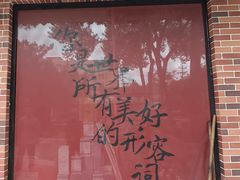 你是
世界
所有美好
的形容词